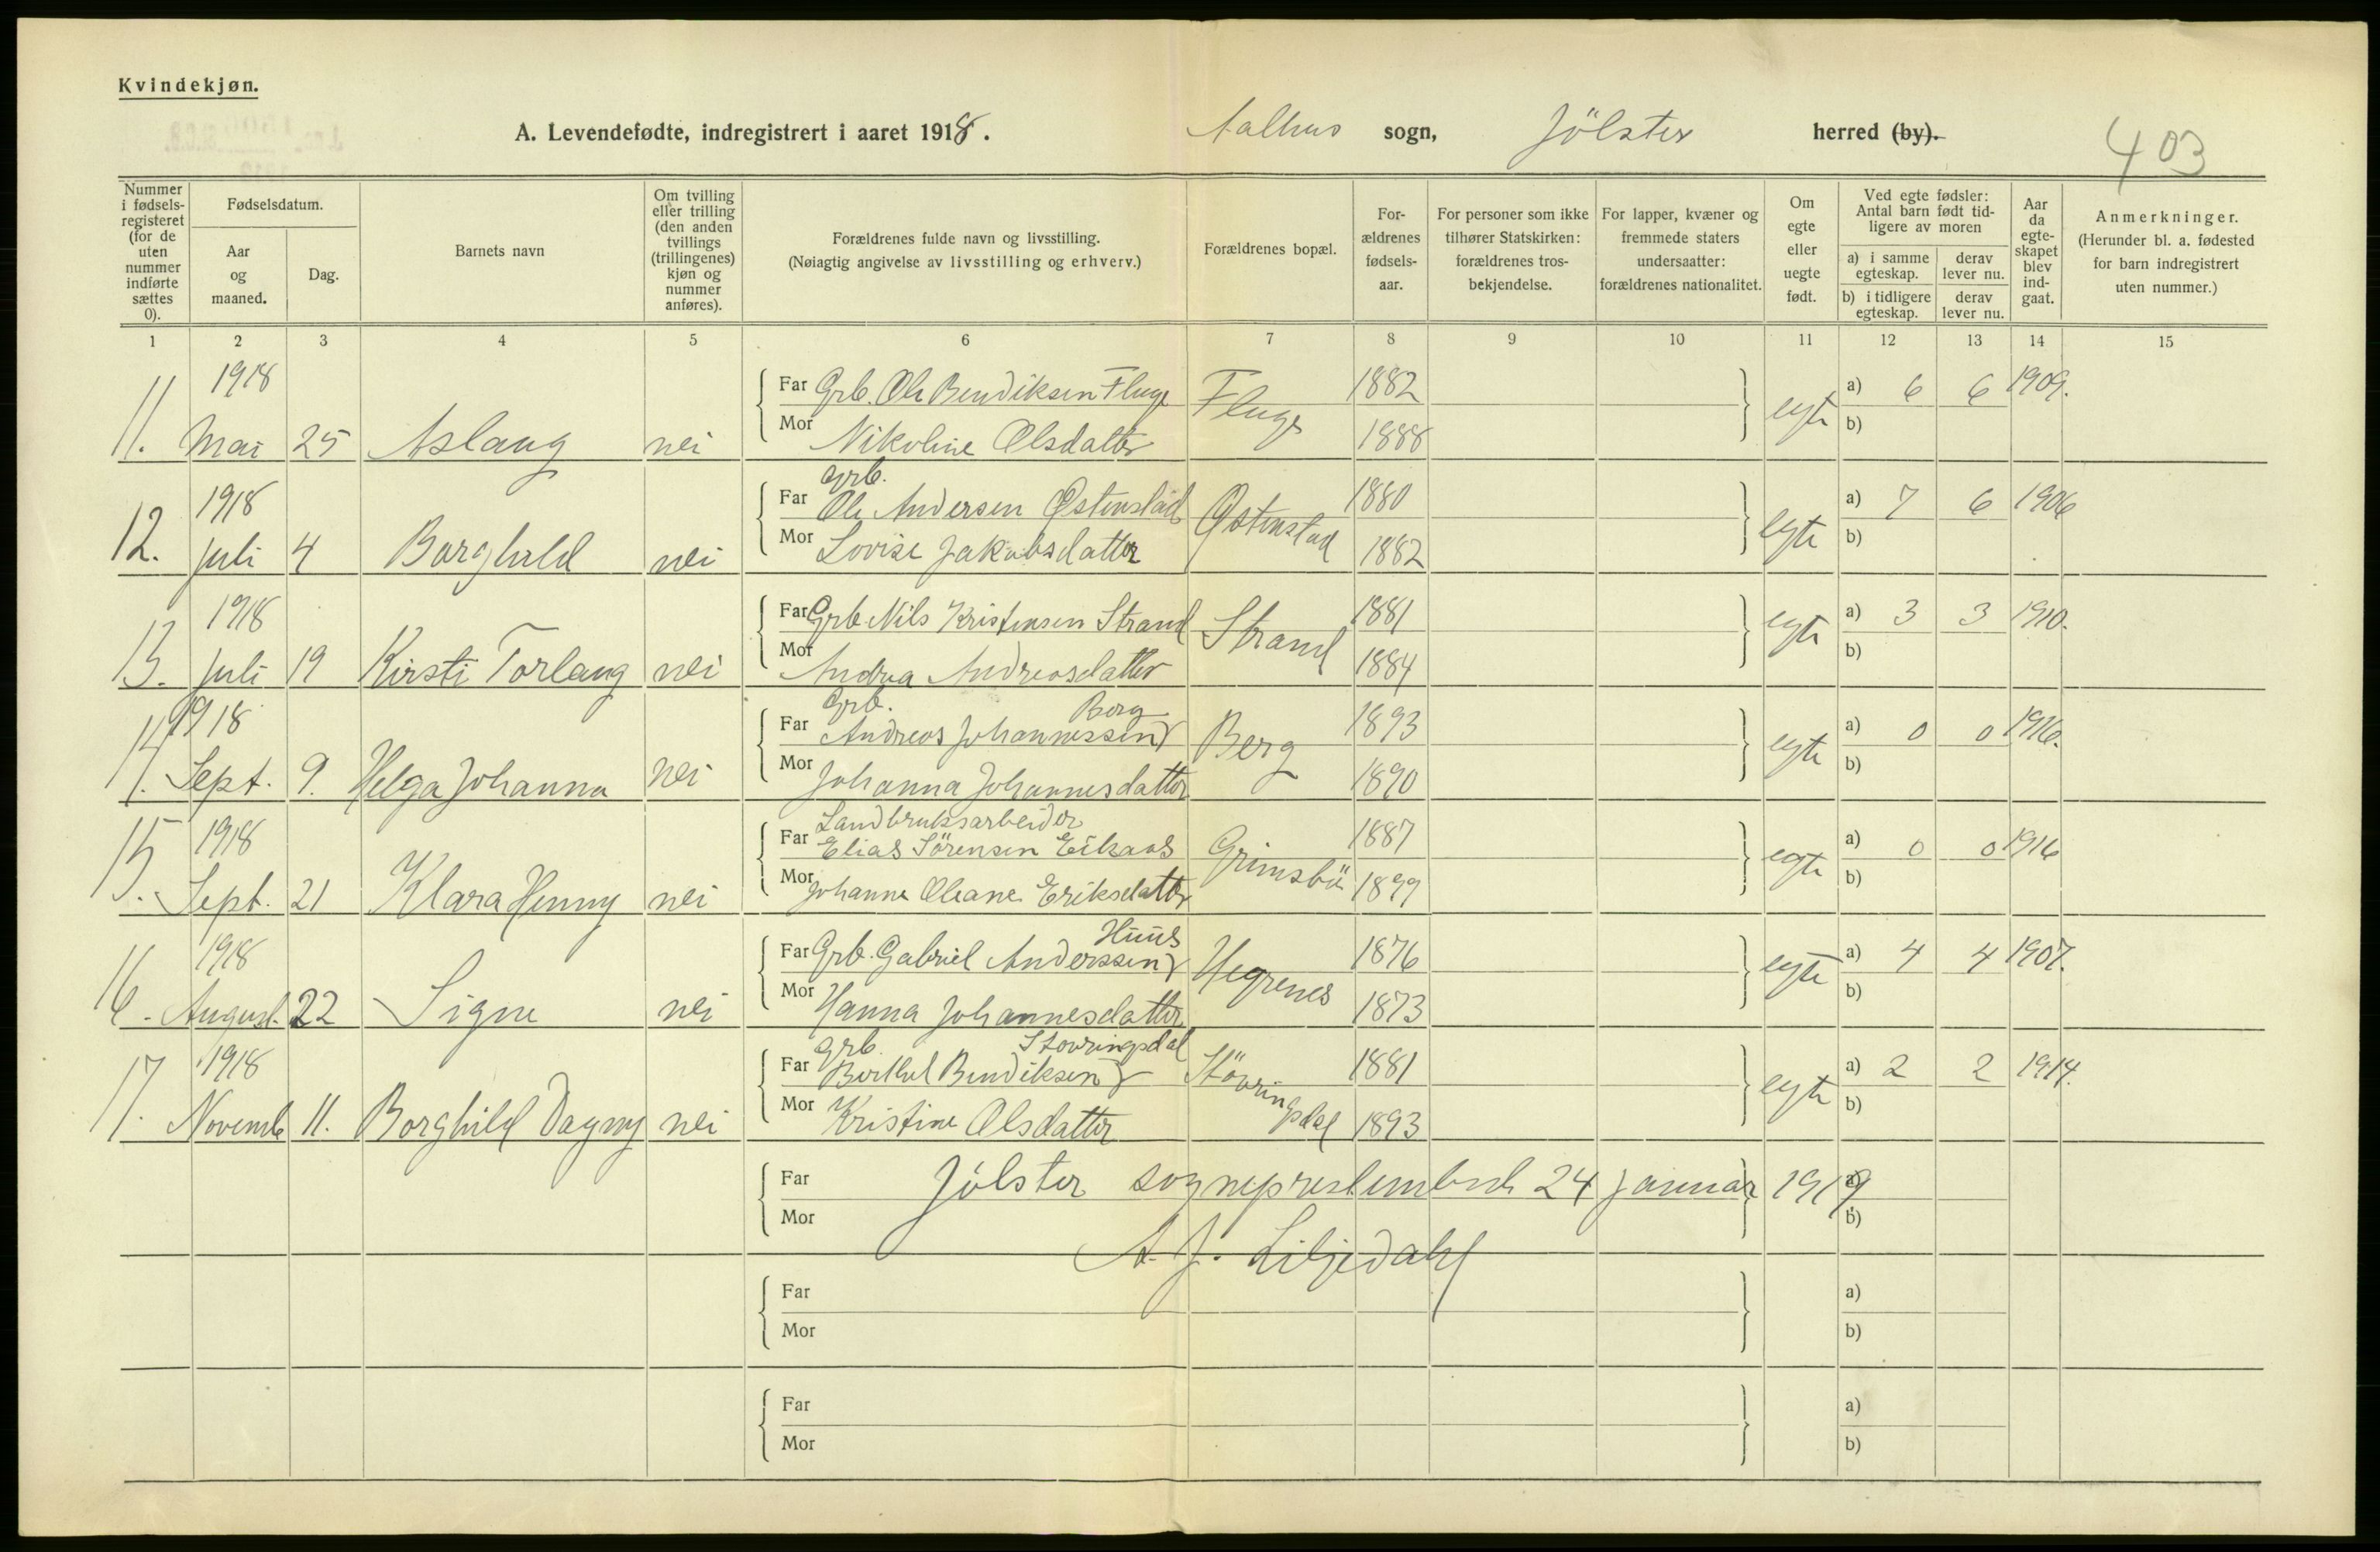 Kvindekjøn.
A. Levendefødte, indregistrert i aaret 1918. Aalhus sogn, Jölster herred (by).
403
Nummer i fødsels-registeret (for de uten nummer indførte sættes 0).
Fødselsdatum.
Aar og maaned.
Dag.
Barnets navn
Om tvilling eller trilling (den anden tvillings (trillingenes) kjøn og nummer anføres).
Forældrenes fulde navn og livsstilling.
(Nøiagtig angivelse av livsstilling og erhverv.)
Forældrenes bopæl.
For-ældrenes fødsels-aar.
For personer som ikke tilhører Statskirken: forældrenes tros-bekjendelse.
For lapper, kvæner og fremmede staters undersaatter: forældrenes nationalitet.
Om egte eller uegte født.
Ved egte fødsler: Antal barn født tid-ligere av moren
a) i samme egteskap.
derav lever nu.
b) i tidligere egteskap.
derav lever nu.
Aar da egte-skapet blev ind-gaat.
Anmerkninger.
(Herunder bl. a. fødested for barn indregistrert uten nummer.)
1 2 3 4 5 6 7 8 9 10 11 12 13 14 15
1918 Far Grb. Ole Bendiksen Fluge Fluge 1882 a) 6 6 1909.
11. Mai 25 Aslaug nei Mor Nikoline Olsdatter 1888 egte b)
Grb.
1918 Far Ole Andersen Østenstad Østenstad 1880 a) 7 6 1906
12. Juli 4 Borghild nei Mor Lovise Jakobsdatter 1882 egte b)
1918 Far Grb. Nils Kristensen Strand Strand 1881 a) 3 3 1910.
13. Juli 19 Kirsti Torlaug nei Mor Andrea Andreasdatter 1884 egte b)
Grb. Berg
1918 Far Andreas Johannessen Berg 1893 a) 0 0 1916.
14. Sept. 9. Helga Johanna nei Mor Johanna Johannesdatter 1890 egte b)
Landbruksarbeider
1918 Far Elias Sörensen Eikaas Grimsbö 1887 a) 0 0 1916
15. Sept. 21 Klara Henny nei Mor Johanne Oleane Eriksdatter 1899 egte b)
Huus
1918 Far Grb. Gabriel Anderssen Hegrenes 1876 a) 4 4 1907.
16. August. 22 Signe nei Mor Hanna Johannesdatter 1873 egte b)
Grb. Stovringsdal
1918 Far Berthel Bendiksen Stövringsdal 1881 a) 2 2 1914.
17. Novemb 11. Borghild Dagny nei Mor Kristine Olsdatter 1893 egte b)
Far Jölster sogneprestembede 24 Januar 1919 a)
Mor b)
A. J. Liljedahl
Far a)
Mor b)
Far a)
Mor b)